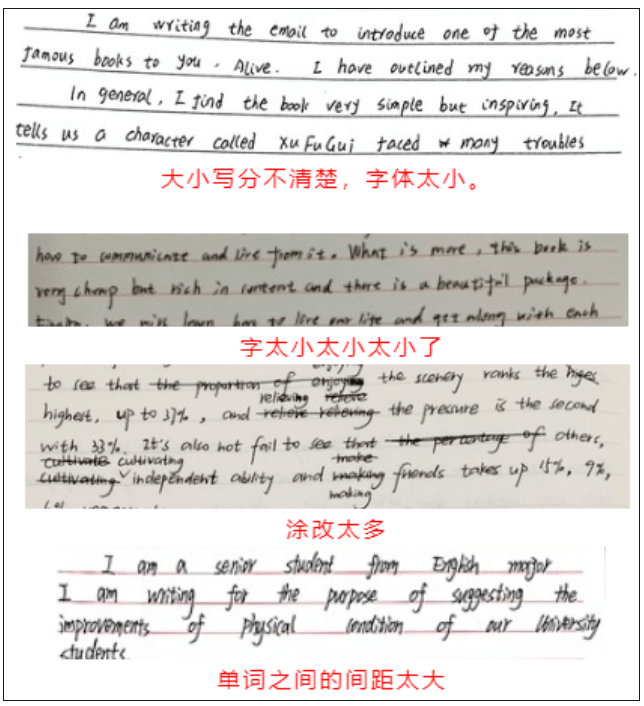 I am writing the email to introduce one of the most
famous books to you, Alive. I have outlined my reasons below.
In general, I find the book very simple but inspiring, It
tells us a character called XuFuGui faced many troubles
大小写分不清楚，字体太小。
how to communicate and live from it. What is more, this book is
very cheap but rich in content and there is a beautiful package.
we will learn how to live our life and get along with each
字太小太小太小了
to see that the proportion of enjoying the scenery ranks the
relieving relieve
highest, up to 37%, and relieve relieving the pressure is the second
with 33%. It's also not fail to see that the percentage of others,
cultivate cultivating make
cultivating independent ability and making friends takes up 15%, 9%,
making
涂改太多
I am a senior student from English major
I am writing for the purpose of suggesting the
improvements of physical condition of our University
students
单词之间的间距太大